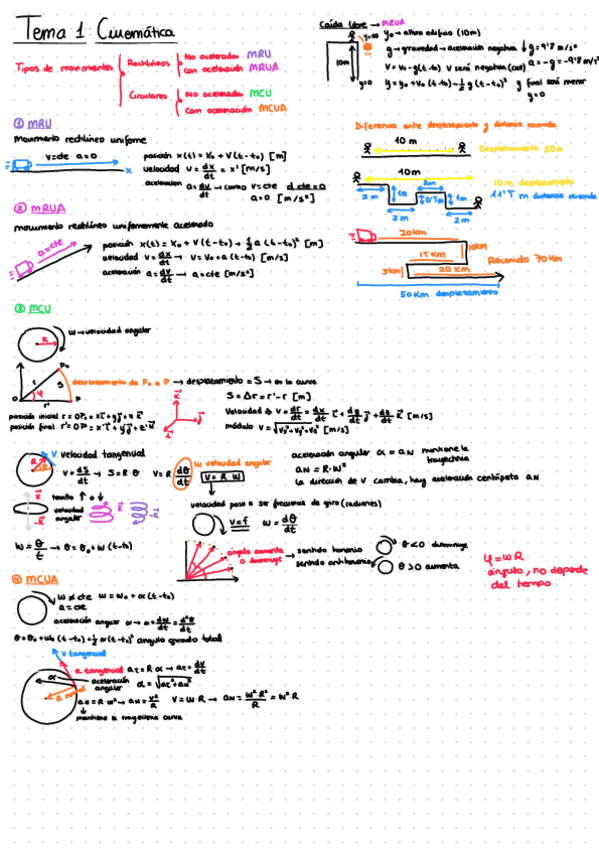 Tema 1: Cinemática
Tipos de movimientos
Rectilíneos
No acelerados MRU
Con aceleración MRUA
Circulares
No acelerado MCU
Con aceleración MCUA
Caída libre → MRUA
y₀ → altura edificio (10m)
g → gravedad → aceleración negativa ↓ g = 9'8 m/s²
v = v₀ - g(t-t₀) v será negativa (cae) a = -g = -9'8 m/s²
y = y₀ + v₀ (t-t₀) - ½ g (t-t₀)² y final será menor
y=0
10m
y=0
① MRU
movimiento rectilíneo uniforme
v=cte a=0
x
posición x(t) = x₀ + v(t-t₀) [m]
velocidad v = dx/dt = x' [m/s]
aceleración a = dv/dt → como v=cte d cte = 0
a=0 [m/s²]
Diferencia entre desplazamiento y distancia recorrida
10 m
Desplazamiento 10m
10 m
2m
2 m
1m
1m
2 m
2 m
10m desplazamiento
m distancia recorrida
② MRUA
movimiento rectilíneo uniformemente acelerado
a=cte
posición x(t) = x₀ + v(t-t₀) + ½ a (t-t₀)² [m]
velocidad v = dx/dt → v = v₀ + a (t-t₀) [m/s]
aceleración a = dv/dt → a = cte [m/s²]
20km
10km
15 km
5km
20 km
Recorrido 70km
50 km desplazamiento
③ MCU
w → velocidad angular
R
P₀
S
P
desplazamiento de P₀ a P → desplazamiento = S → en la curva
S = Δr = r' - r [m]
posición inicial
posición final
Velocidad
módulo
[m/s]
V velocidad tangencial
v = ds/dt → S = R·θ
v = R dθ/dt
w velocidad angular
v = R·w
aceleración angular α = aN mantiene la
trayectoria
aN = R·w²
La dirección de v cambia, hay aceleración centrípeta aN
tornillo ↑ o ↓
velocidad
angular
velocidad pasa a ser frecuencia de giro (radianes)
v=f w = dθ/dt
w = θ/t → θ = θ₀ + w (t-t₀)
ángulo aumenta
o disminuye
sentido horario θ<0 disminuye
sentido antihorario θ>0 aumenta
φ = wR
ángulo, no depende
del tiempo
④ MCUA
w ≠ cte w = w₀ + α(t-t₀)
α = cte
aceleración angular α → α = dw/dt = d²θ/dt
θ = θ₀ + w₀ (t-t₀) + ½ α(t-t₀)² ángulo girado total
v tangencial
a tangencial aT = R α → aT = dv/dt
aceleración
angular
α = √aT² + aN²
aN = R·w² → aN = v²/R v = w·R → aN = w²·R²/R = w²·R
mantiene la trayectoria curva